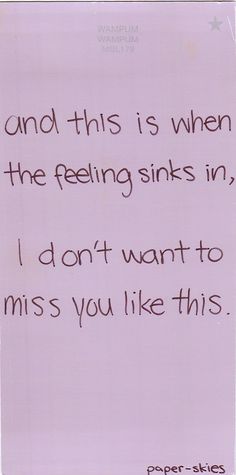 WAMPUM
WAMPUM
MSL179
and this is when
the feeling sinks in,
I don't want to
miss you like this.
paper-skies